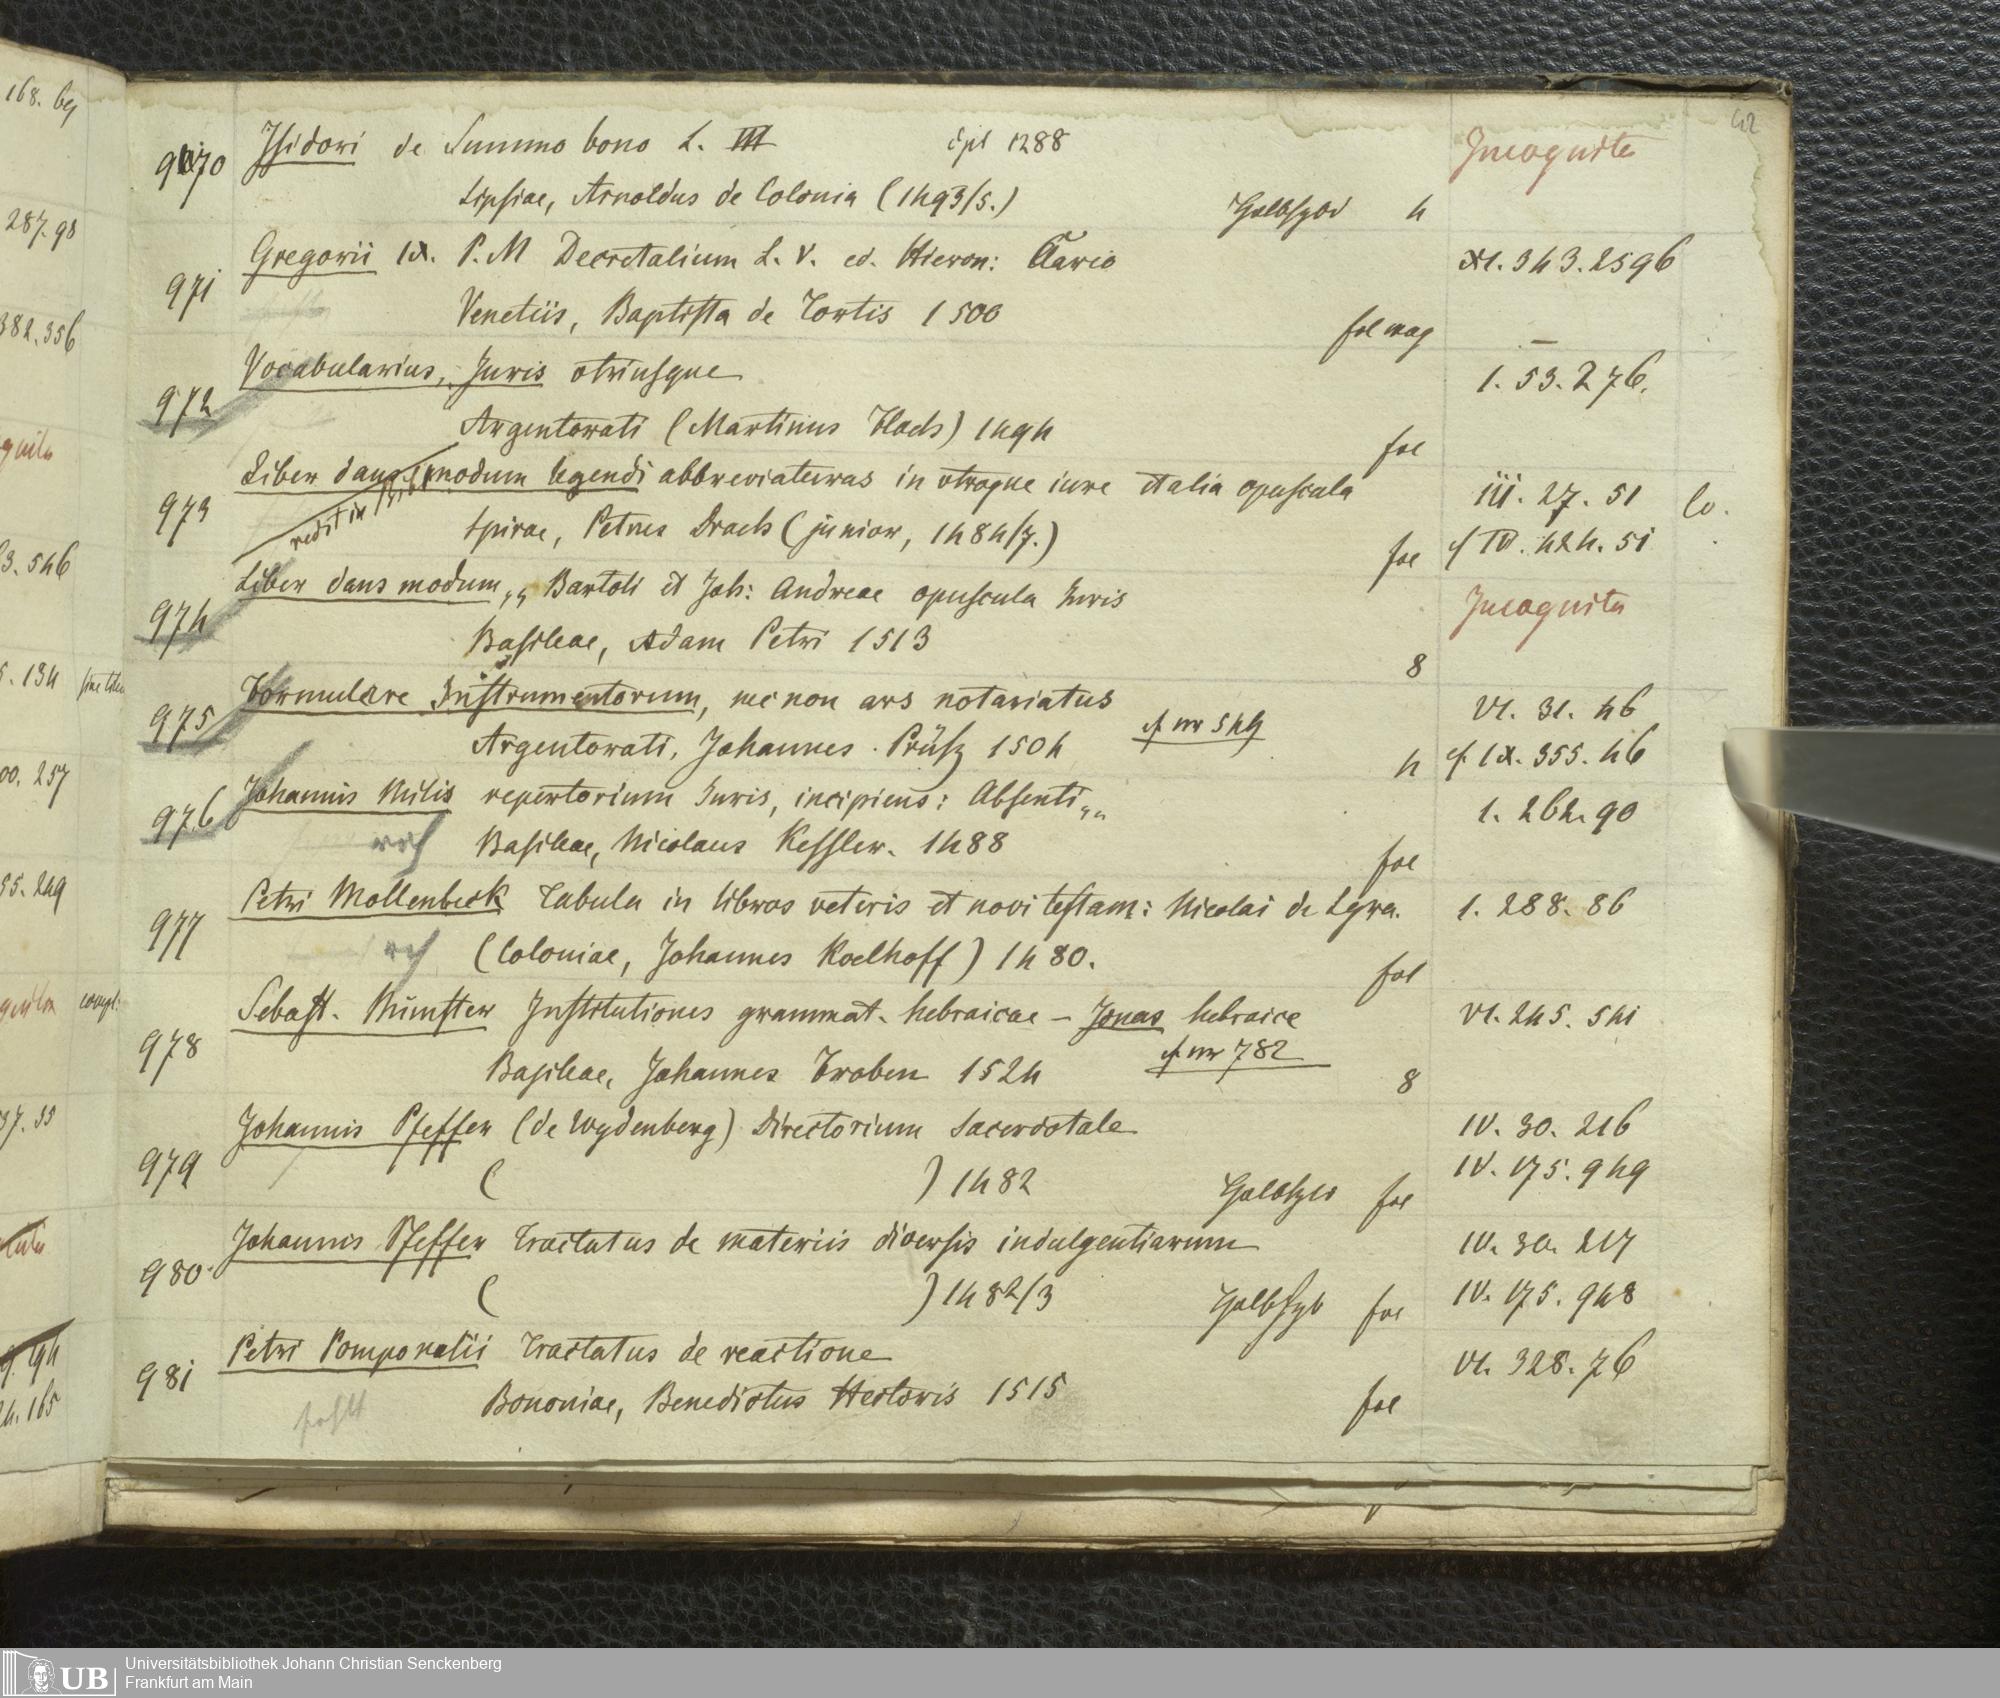 168. 69
287. 98
382. 356
3. 546
5. 134 sine titu
00. 257
55. 249
37. 35
9. 194
4. 165
42
970 Isidori de Summo bono L. III dpl 1288 Incognita
Lipsiae, Arnoldus de Colonia (1493/5.) 4
971 Gregorii IX. P. M Decretalium L. V. ed. Hieron: Clario XI. 343. 2596
Venetiis, Baptista de Tortis 1500 fol mag
972 Vocabularius, Juris utriusque 1. 53. 276.
Argentorati (Martinus Flach) 1494 fol
973 Liber dans modum legendi abbreviaturas in utroque iure et alia opuscula III. 27. 51 Co.
redit in Bibl.
Spirae, Petrus Drach (junior, 1484/7.) fol cf IV. 424. 51
974 Liber dans modum „“ Bartoli et Joh: Andreae opuscula Juris Incognita
Basileae, Adam Petri 1513 8
975 Formulare Instrumentorum, nec non ars notariatus VI. 31. 46
Argentorati, Johannes Prüsz 1504 cf nr 549 4 cf. IX. 355. 46
976 Johannis Milis repertorium Juris, incipiens: Absenti„“ 1. 262. 90
Basileae, Nicolaus Kessler. 1488 fol
977 Petri Mollenbeck Tabula in libros veteris et novi testam: Nicolai de Lyra. 1. 288. 86
(Coloniae, Johannes Koelhoff) 1480. fol
978 Sebast. Münster Institutiones grammat. hebraicae – Jonas hebraice VI. 245. 541
Basileae, Johannes Froben 1524 cf nr 782 8
979 Johannis Pfeffer (de Wydenberg) Directorium Sacerdotale IV. 30. 216
( ) 1482 fol IV. 175. 949
980 Johannis Pfeffer Tractatus de materiis diversis indulgentiarum IV. 30. 217
( ) 1482/3 fol IV. 175. 948
981 Petri Pomponatii Tractatus de reactione VI. 328. 76
fehlt Bononiae, Benedictus Hectoris 1515 fol
UB Universitätsbibliothek Johann Christian Senckenberg
Frankfurt am Main